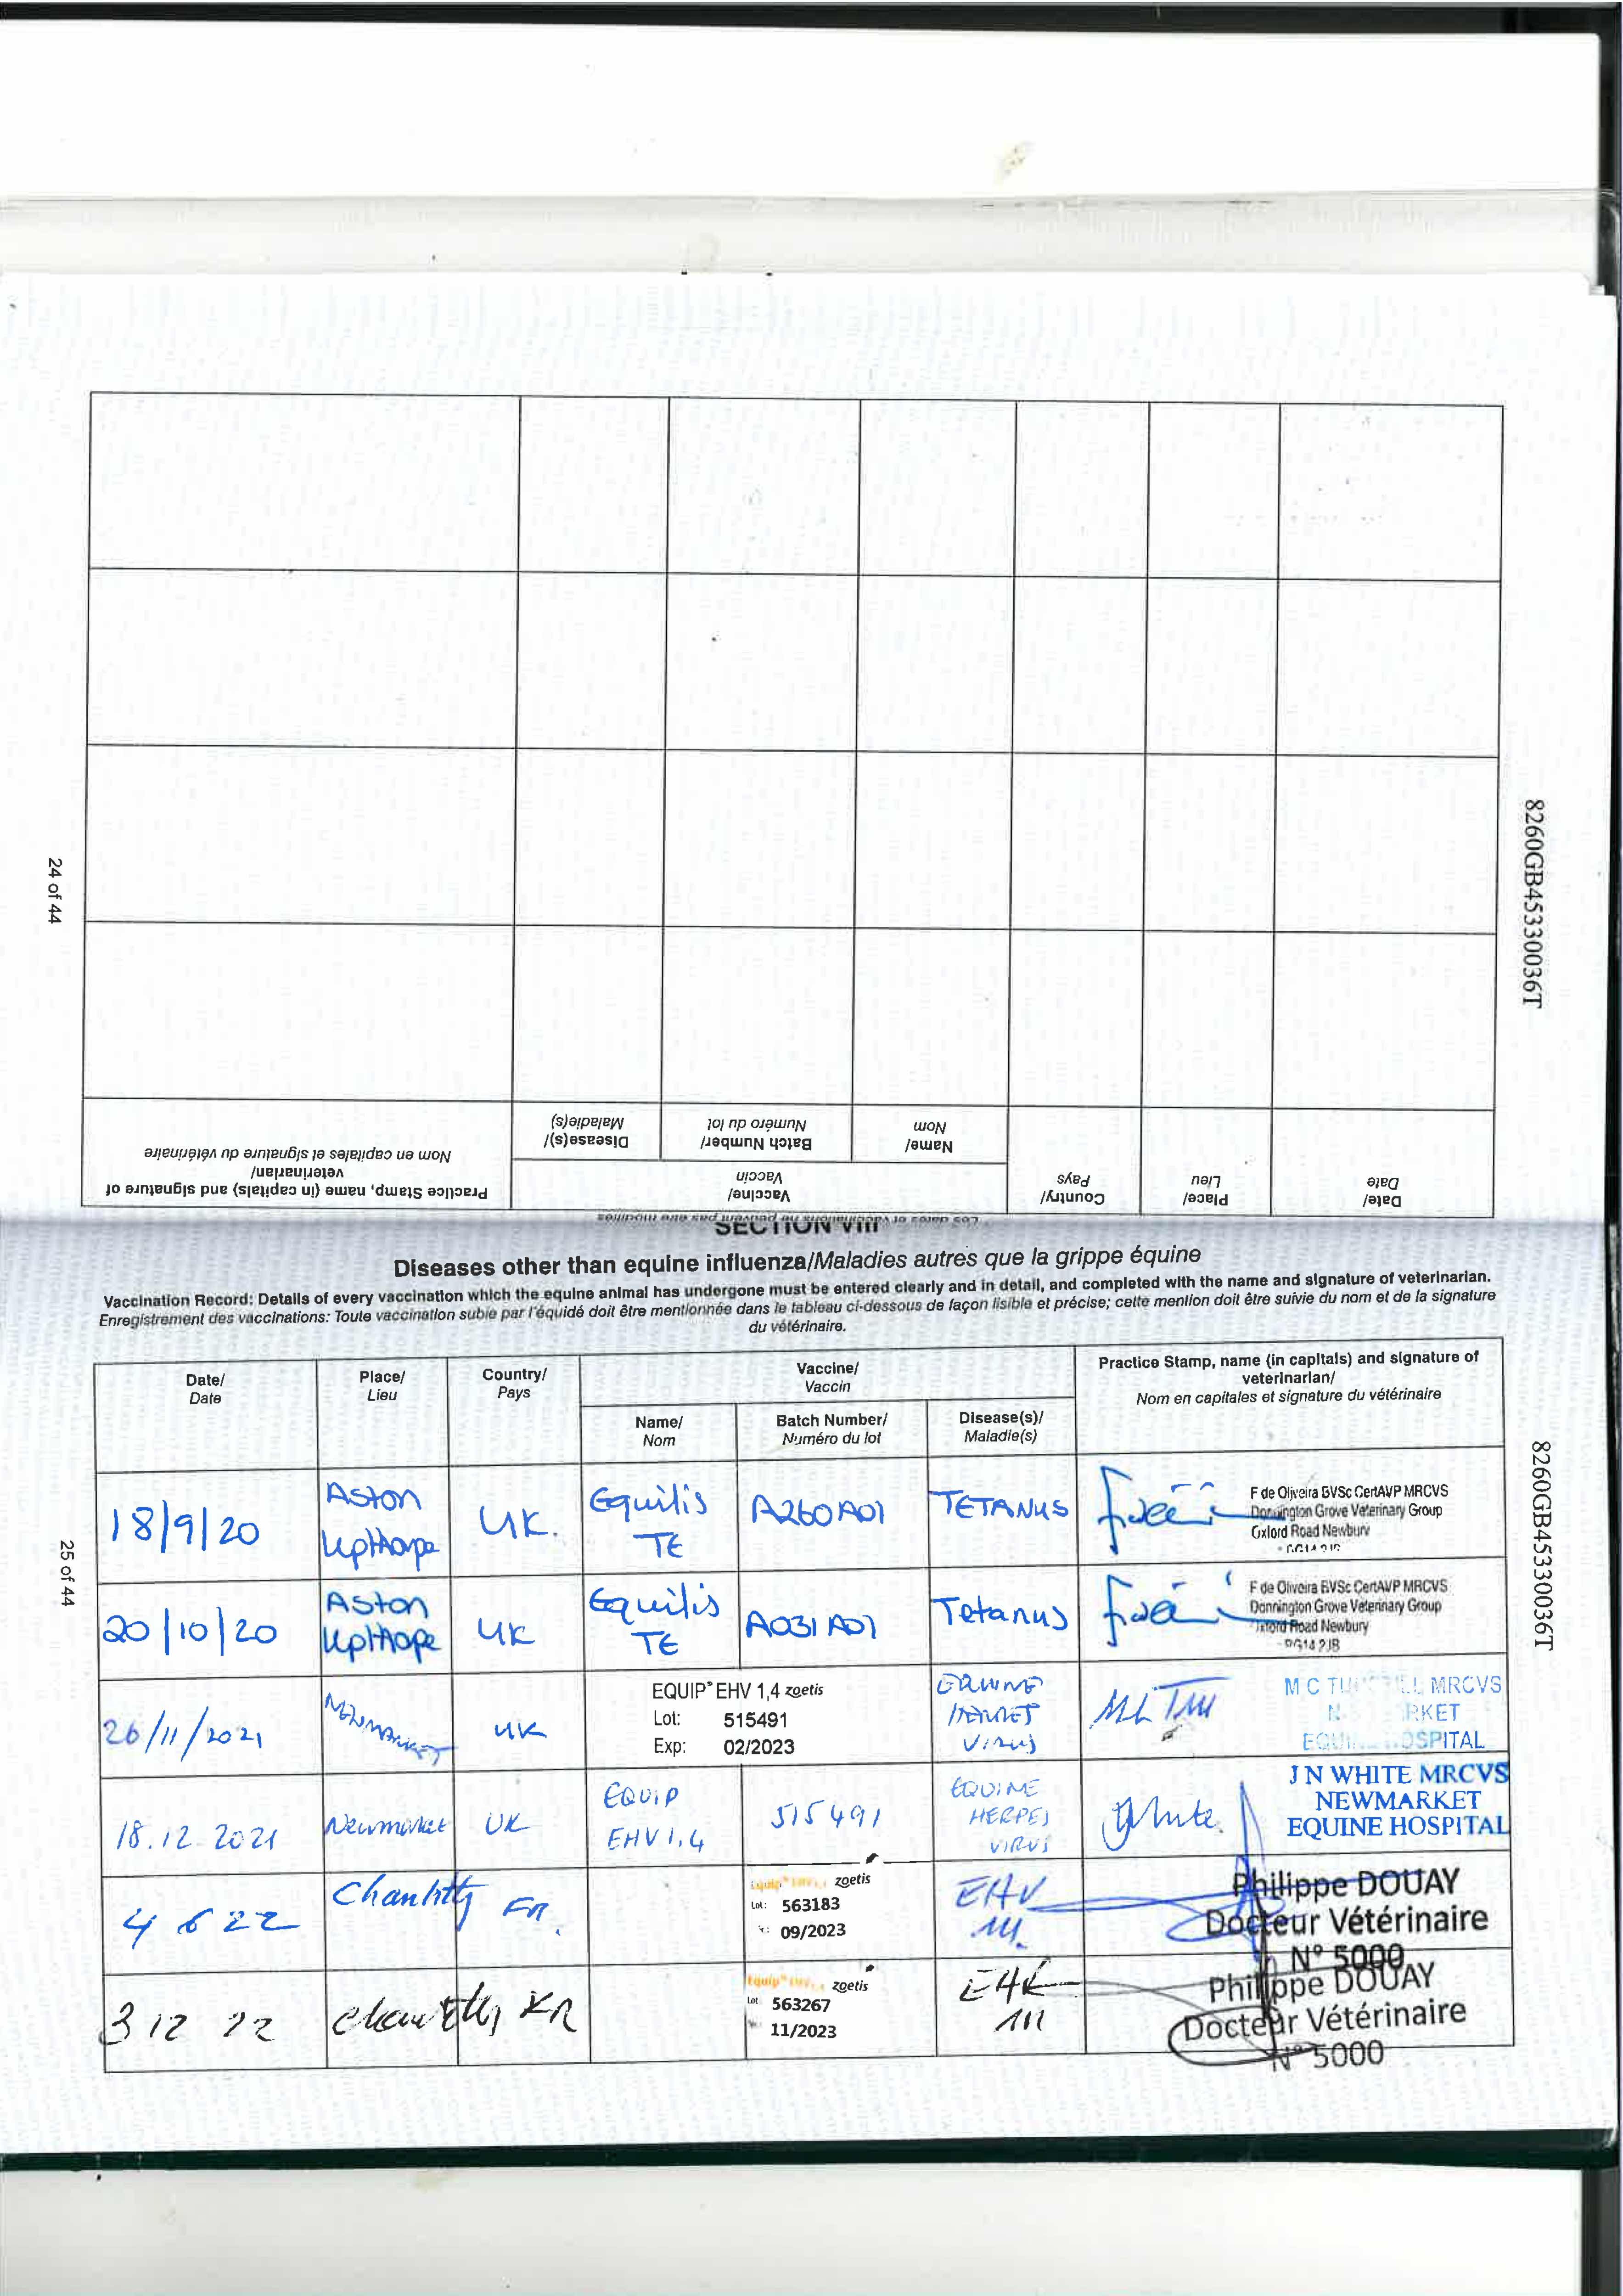 8260GB45330036T
24 of 44
Date/
Date
Place/
Lieu
Country/
Pays
Vaccine/
Vaccin
Name/
Nom
Batch Number/
Numéro du lot
Disease(s)/
Maladie(s)
Practice Stamp, name (in capitals) and signature of
veterinarian/
Nom en capitales et signature du vétérinaire
Les dates de vaccinations ne peuvent pas être modifiées
SECTION VIII
Diseases other than equine influenza/Maladies autres que la grippe équine
Vaccination Record: Details of every vaccination which the equine animal has undergone must be entered clearly and in detail, and completed with the name and signature of veterinarian.
Enregistrement des vaccinations: Toute vaccination subie par l'équidé doit être mentionnée dans le tableau ci-dessous de façon lisible et précise; cette mention doit être suivie du nom et de la signature
du vétérinaire.
Date/
Date
Place/
Lieu
Country/
Pays
Vaccine/
Vaccin
Name/
Nom
Batch Number/
Numéro du lot
Disease(s)/
Maladie(s)
Practice Stamp, name (in capitals) and signature of
veterinarian/
Nom en capitales et signature du vétérinaire
18/9/20
Aston
Upthorpe
UK.
Equilis
TE
A260A01
TETANUS
F de Oliveira BVSc CertAVP MRCVS
Donnington Grove Veterinary Group
Oxford Road Newbury
20/10/20
Aston
Upthope
UK
Equilis
TE
A031A01
Tetanus
F de Oliveira BVSc CertAVP MRCVS
Donnington Grove Veterinary Group
Oxford Road Newbury
RG14 2JB
26/11/2021
Newmarket
UK
EQUIP® EHV 1,4 zoetis
Lot: 515491
Exp: 02/2023
EQUINE
HERPES
VIRUS
M C MRCVS
EQUINE HOSPITAL
18.12.2021
Newmarket
UK
EQUIP
EHV 1,4
515491
EQUINE
HERPES
VIRUS
White.
J N WHITE MRCVS
NEWMARKET
EQUINE HOSPITAL
4 6 22
Chantilly
FR.
Equip zoetis
Lot: 563183
09/2023
EHV
Philippe DOUAY
Docteur Vétérinaire
N° 5000
3 12 22
Chantilly
FR
Equip zoetis
Lot 563267
11/2023
Philippe DOUAY
Docteur Vétérinaire
N° 5000
25 of 44
8260GB45330036T